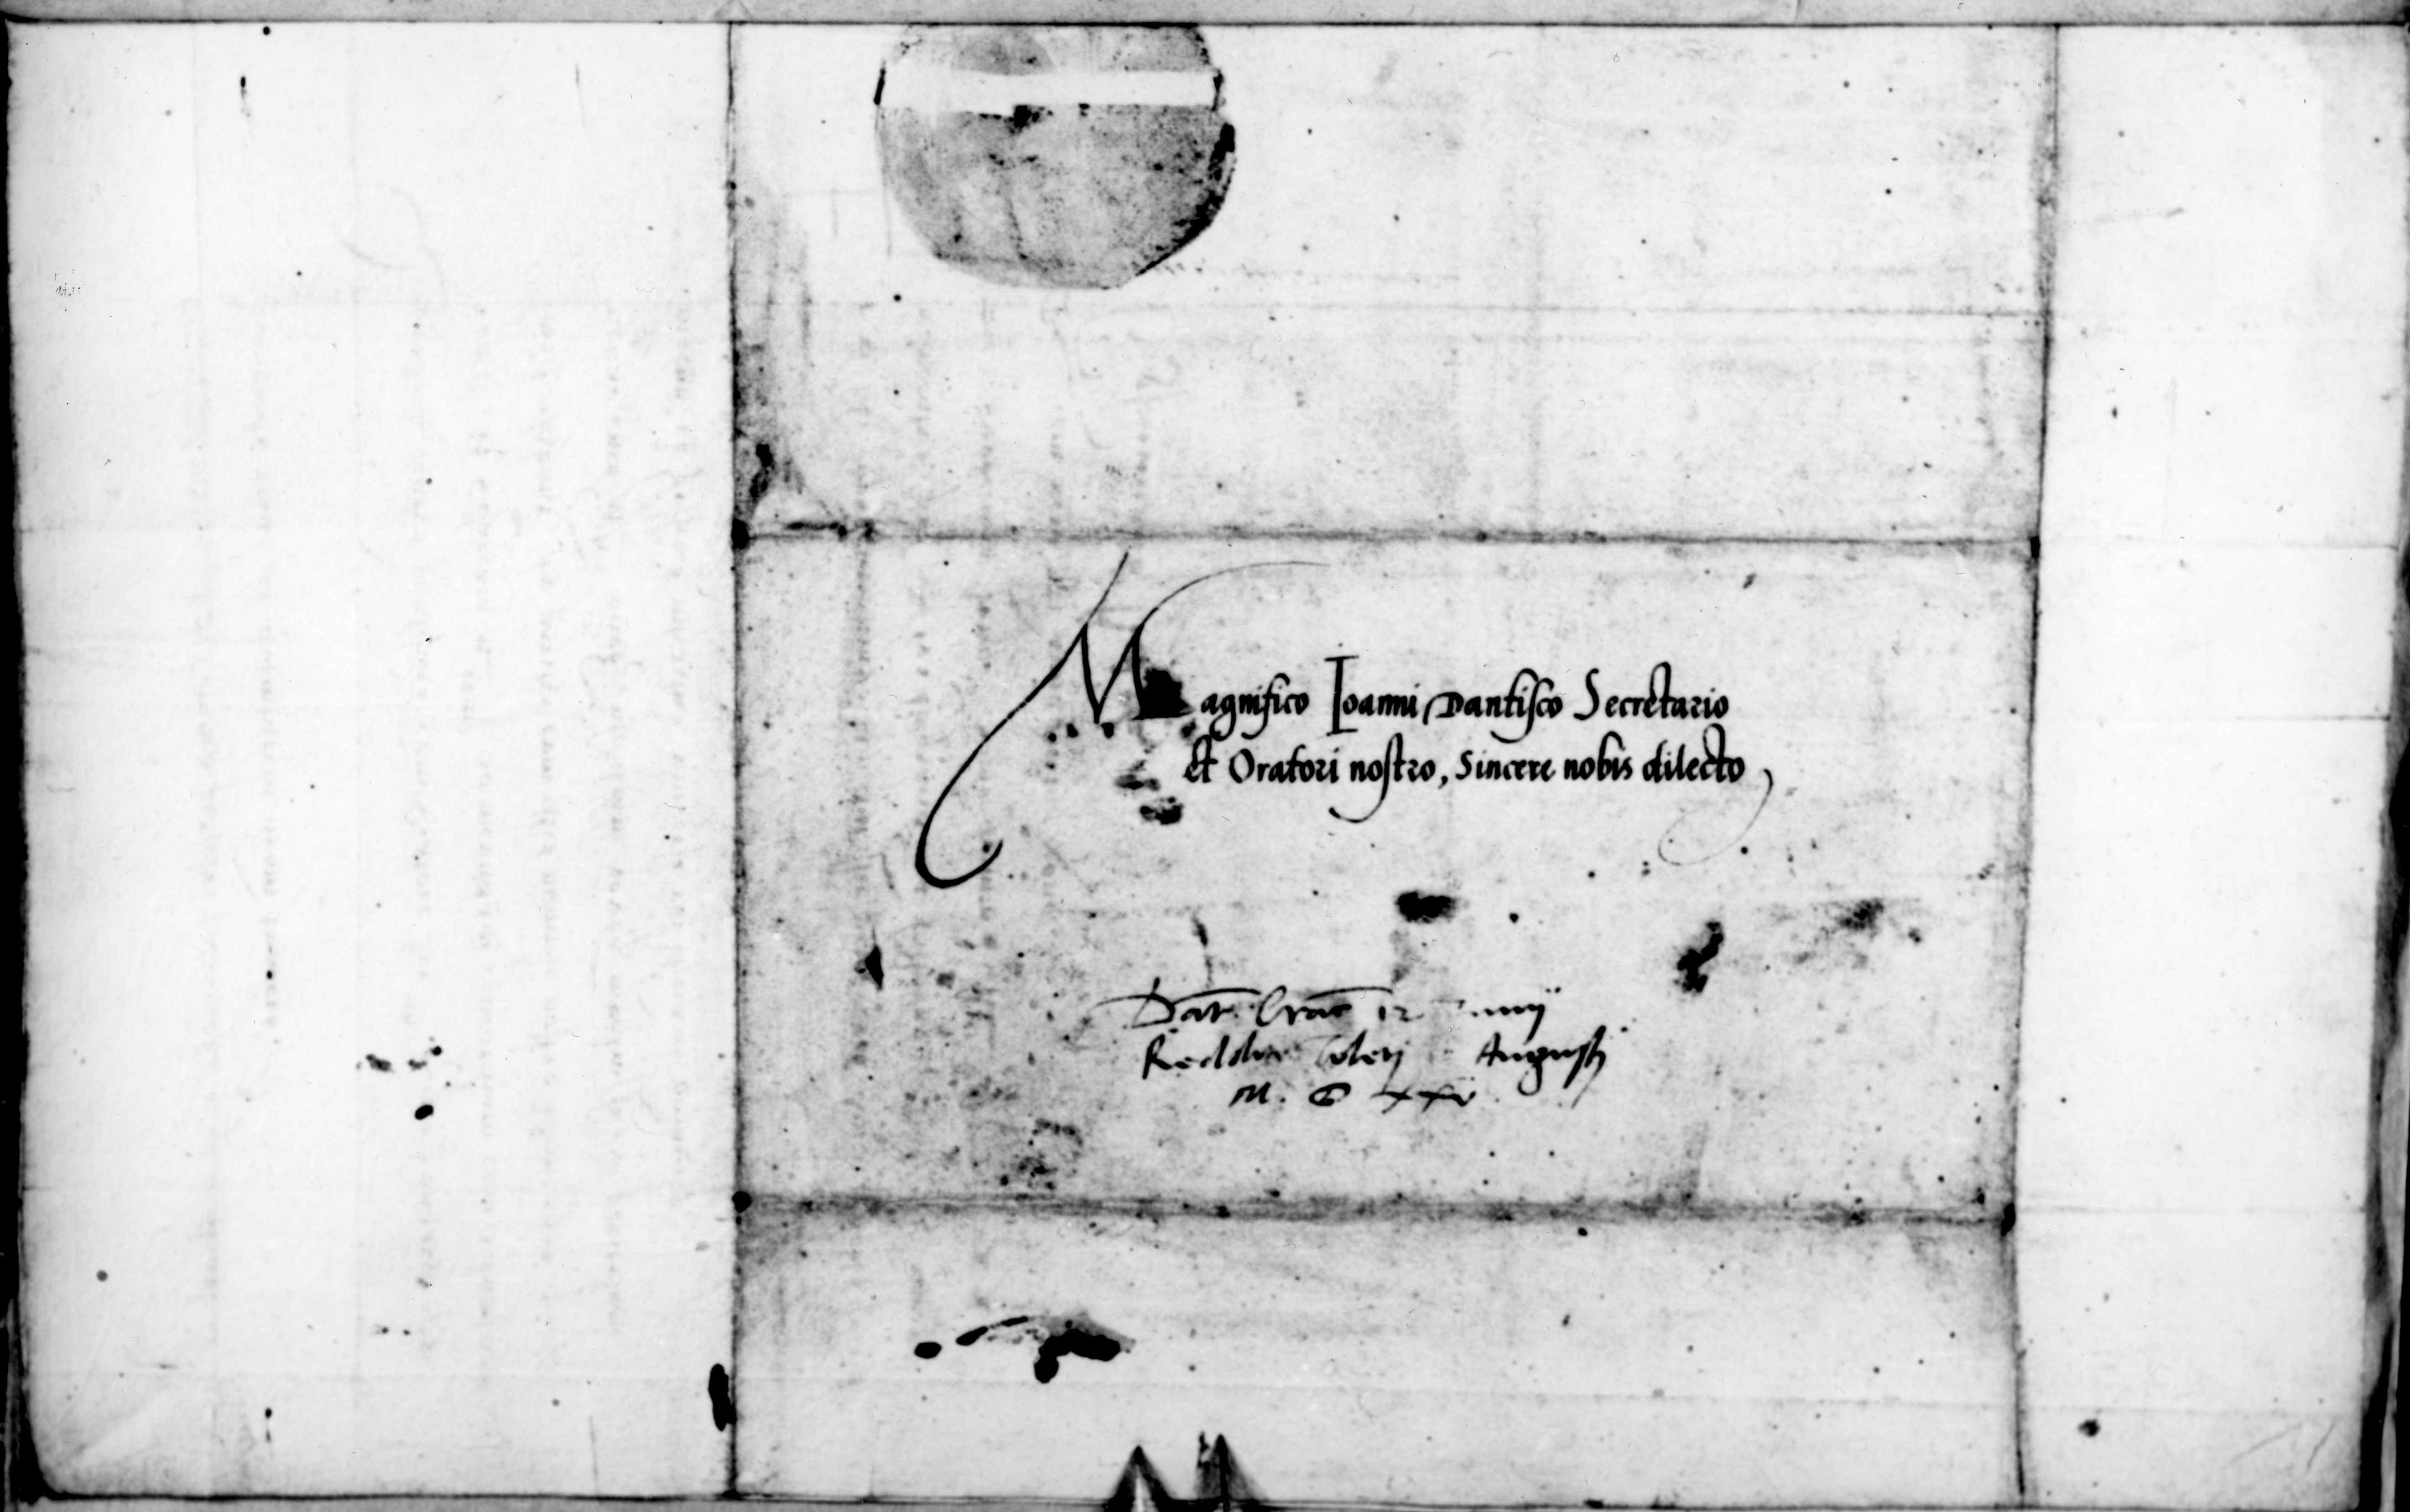 Magnifico Ioanni Dantisco Secretario
et Oratori nostro, Sincere nobis dilecto
Dat Crac 12 Iunij
Reddite Augusti
M. D XXV